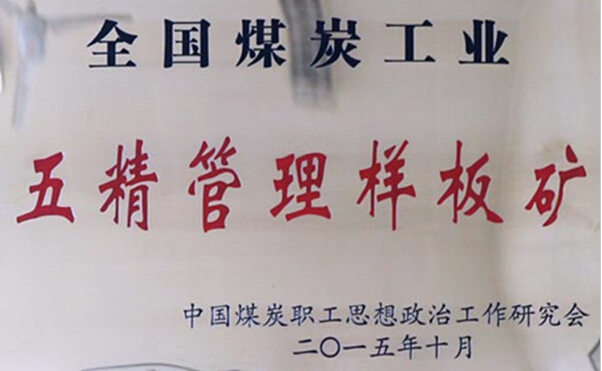 全国煤炭工业
五精管理样板矿
中国煤炭职工思想政治工作研究会
二〇一五年十月